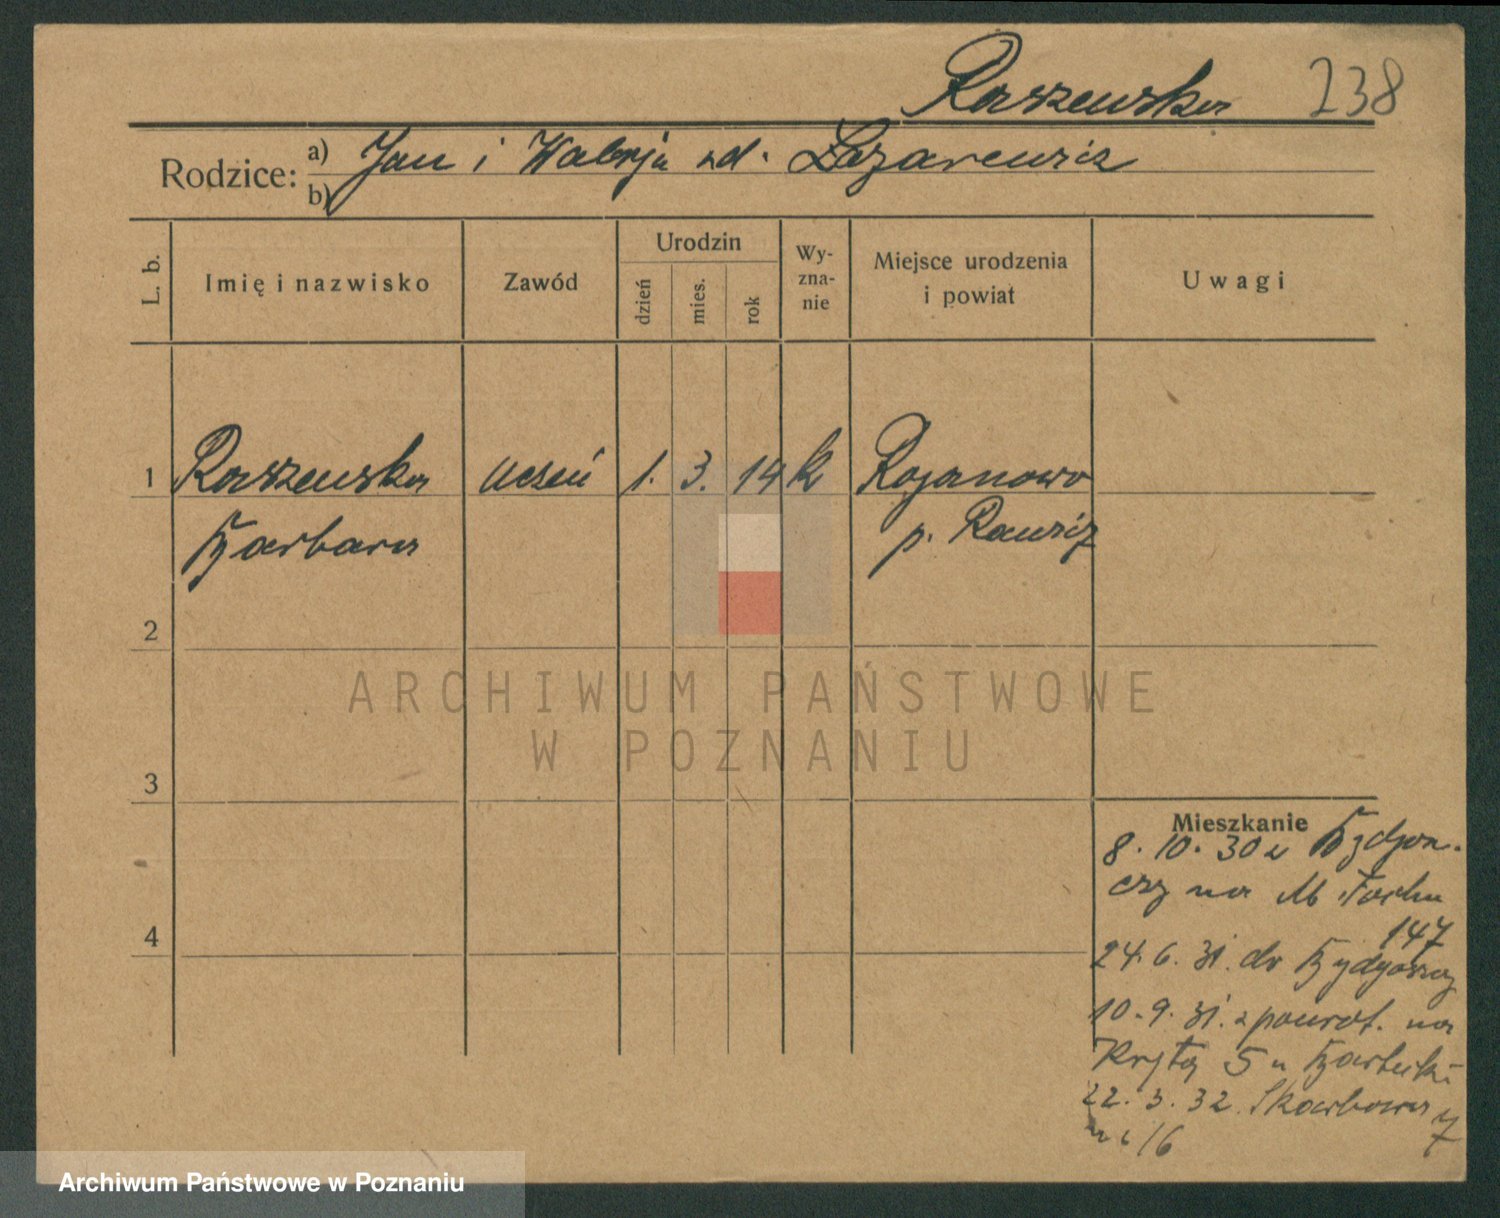 Raszewska 238
Rodzice: a) Jan i Walerja zd. Łazarewicz
b)
L. b. Imię i nazwisko Zawód Urodzin dzień mies. rok Wy-zna-nie Miejsce urodzenia i powiat Uwagi
1 Raszewska uczeń 1. 3. 14 k Rojanowo
Barbara p. Rawicz
2
ARCHIWUM PAŃSTWOWE
W POZNANIU
3
Mieszkanie
8. 10. 30 z Bydgosz-
czy na M Focha
4
147
24. 6. 31. do Bydgoszczy
10. 9. 31. z powrot. na
Krętą 5 u
22. 3. 32. Skarbowa 7
16
Archiwum Państwowe w Poznaniu